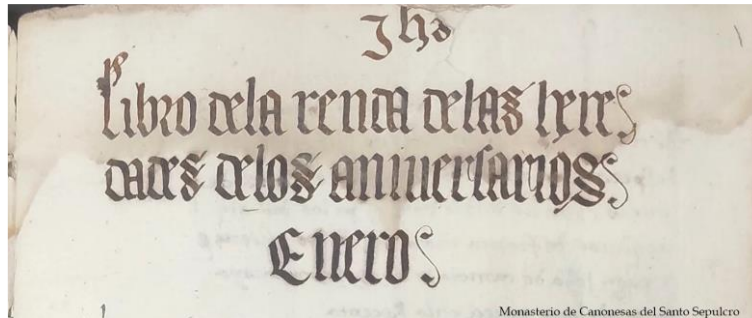 Jhs
Libro dela renta delas here
dades delos aniuersarios
Enero
Monasterio de Canonesas del Santo Sepulcro